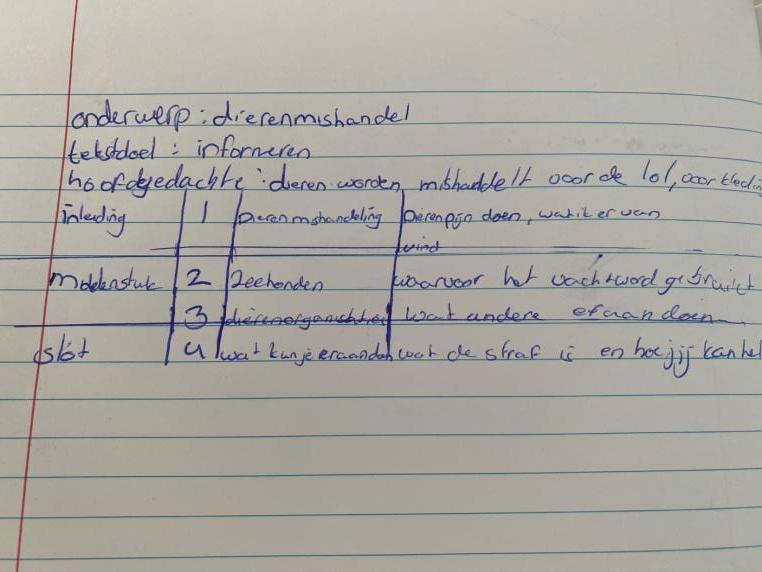 onderwerp : dierenmishandel
tekstdoel : informeren
hoofdgedachte : dieren worden mishaddelt voor de lol, voor kledin
inleiding 1 Dierenmishandeling Dieren pijn doen, wat ik er van
vind
Middenstuk 2 Zeehonden waarvoor het vacht word gebruikt
3 wat andere eraan doen
slot 4 wat kun je eraan doen wat de straf is en hoe jij kan hel